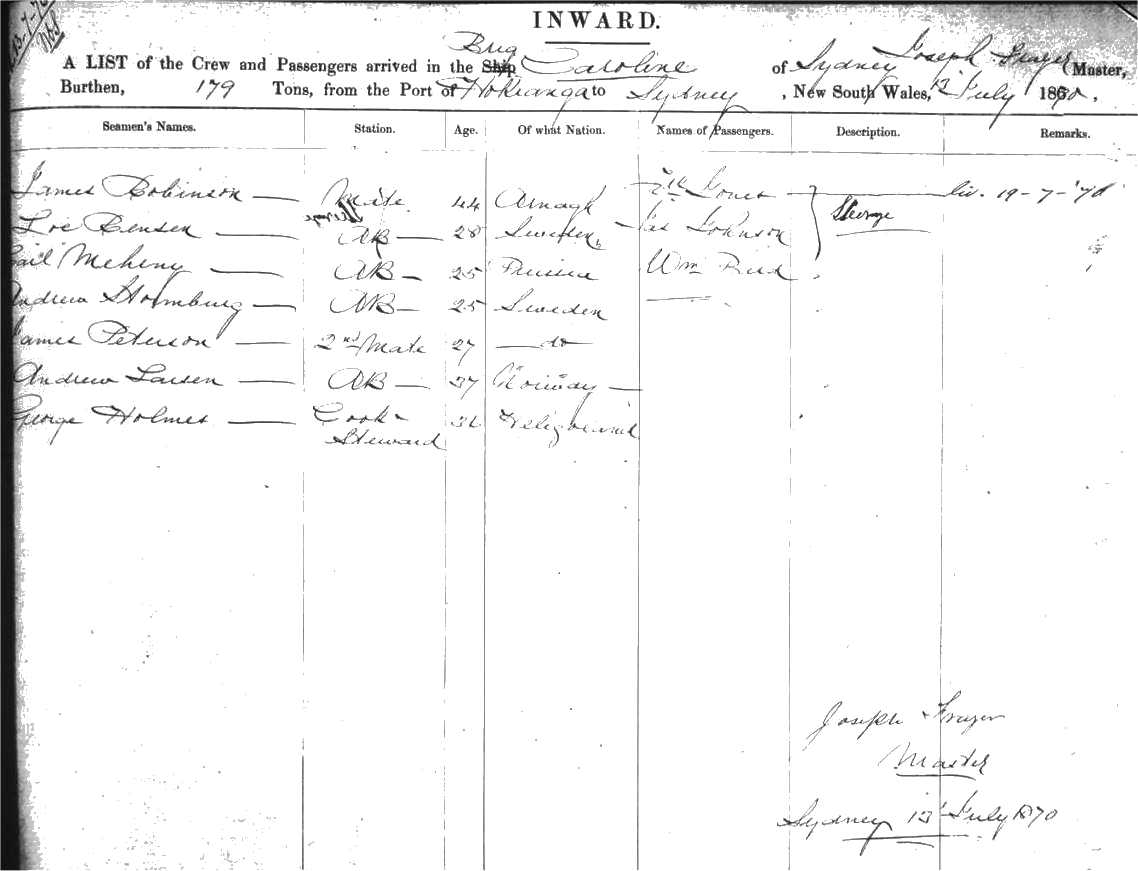 13-7-70
INWARD.
A LIST of the Crew and Passengers arrived in the Ship Brig Caroline of Sydney Joseph Frazer (Master,
Burthen, 179 Tons, from the Port of Hokianga to Sydney, New South Wales, 13 July 1870.
Seamen's Names. Station. Age. Of what Nation. Names of Passengers. Description. Remarks.
James Robinson — Mate 44 Armagh Jones liv. 19-7-'70
Bensen — AB — 28 Sweden Jas Johnson Steerge
— AB — 25 Prussia Wm Reid
Andrew Stormburg — AB — 25 Sweden
James Peterson — 2nd Mate 27 — do —
Andrew Larsen — AB — 37 Norway —
George Holmes — Cook &
Steward
Joseph Frazer
Master
Sydney 13 July 1870